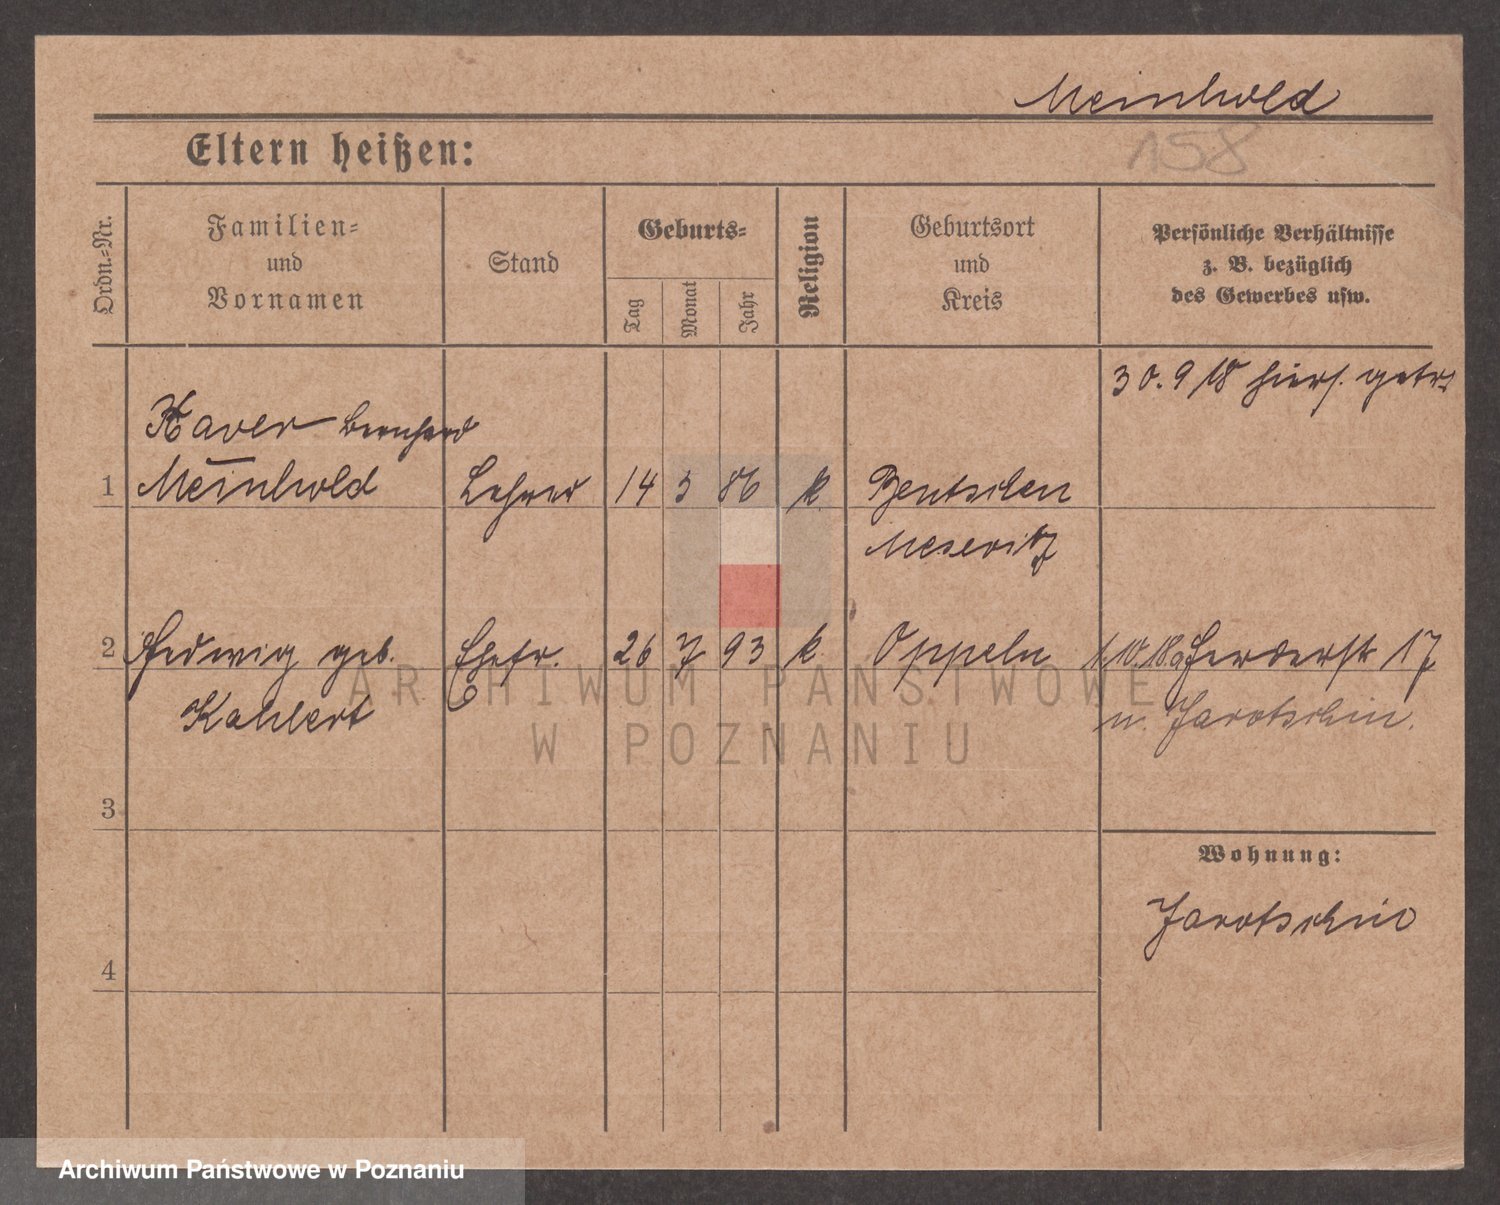 Meinhold
158
Eltern heißen:
Ordn.-Nr.
Familien-
und
Vornamen
Stand
Geburts-
Tag
Monat
Jahr
Religion
Geburtsort
und
Kreis
Persönliche Verhältnisse
z. B. bezüglich
des Gewerbes usw.
30.9 18 hiers. getr.
Xaver Bernhard
1 Meinhold Lehrer 14 3 86 k. Bentschen
Meseritz
2 Hedwig geb. Ehefr. 26 7 93 k. Oppeln 1.10.18 Herderstr 17
Kahlert n. Jarotschin.
3
Wohnung:
Jarotschin
4
ARCHIWUM PAŃSTWOWE
W POZNANIU
Archiwum Państwowe w Poznaniu